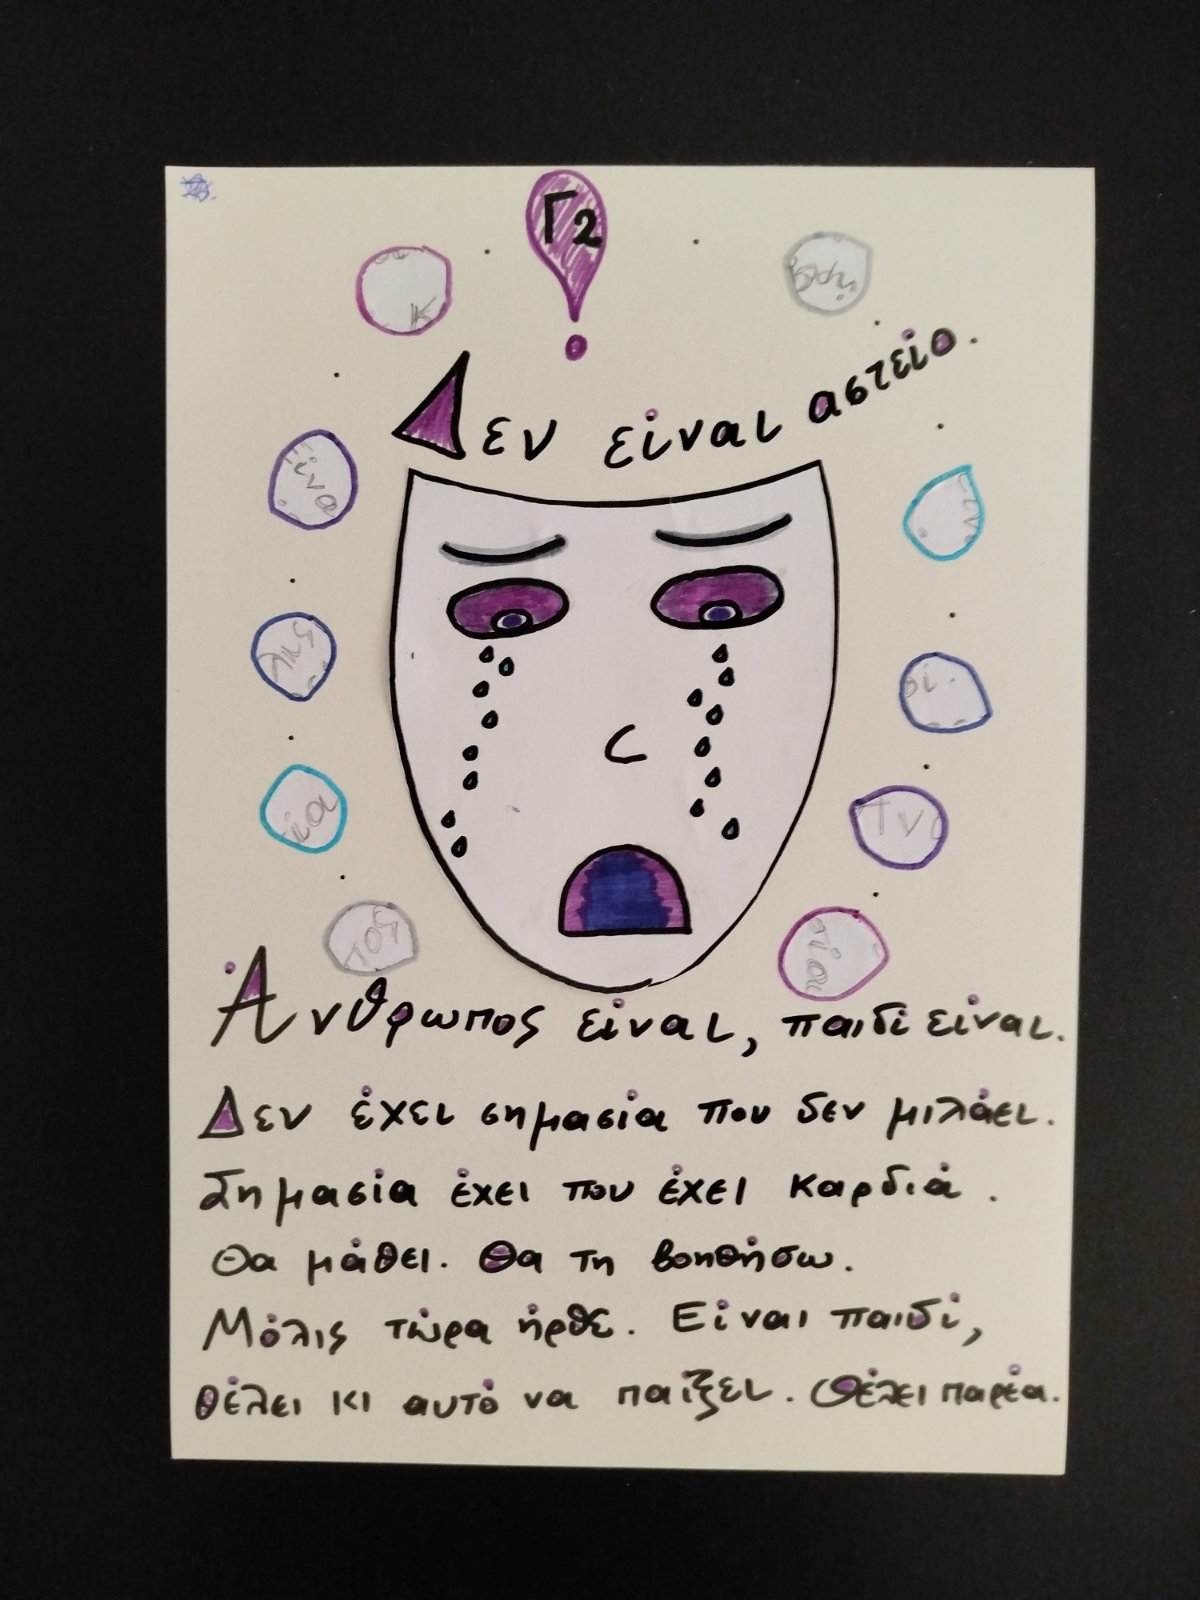 Γ2
Δεν είναι αστείο.
είνα
της
ία
τος
Άνθρωπος είναι, παιδί είναι.
Δεν έχει σημασία που δεν μιλάει.
Σημασία έχει που έχει καρδιά.
Θα μάθει. Θα τη βοηθήσω.
Μόλις τώρα ήρθε. Είναι παιδί,
θέλει κι αυτό να παίξει. Θέλει παρέα.